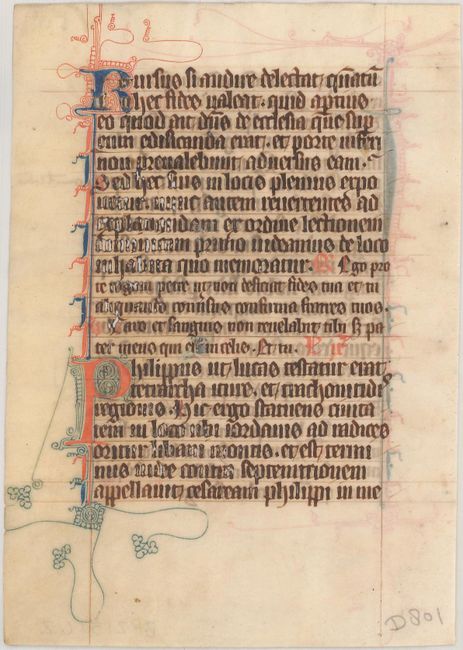 Rursus si audire delectat, q̄natū
hec fides ualeat. quid aptius
eo quod ait dn̄s de ecclesia que sup
eum edificanda erat. et porte inferi
non preualebunt aduersus eam.
Sed hec suis in locis plenius expo
autem reuertentes ad
et ordine lectionem
primo uideamus de loco
quo memoratur. Ego pro
te rogaui petre ut non deficiat fides tua et tu
aliquando conuersus confirma fratres tuos.
Caro et sanguis non reuelabit tibi sz pa
ter meus qui est in celis. Et tu.
Philippus ut lucas testatur erat
tetrarcha iturie, et trachonitidis
regionis. Hic ergo statuens ciuita
tem in loco ubi iordanis ad radices
oritur libani montis. et est termi
nus iudee contra septentrionem
appellauit cesaream philippi in me
D801